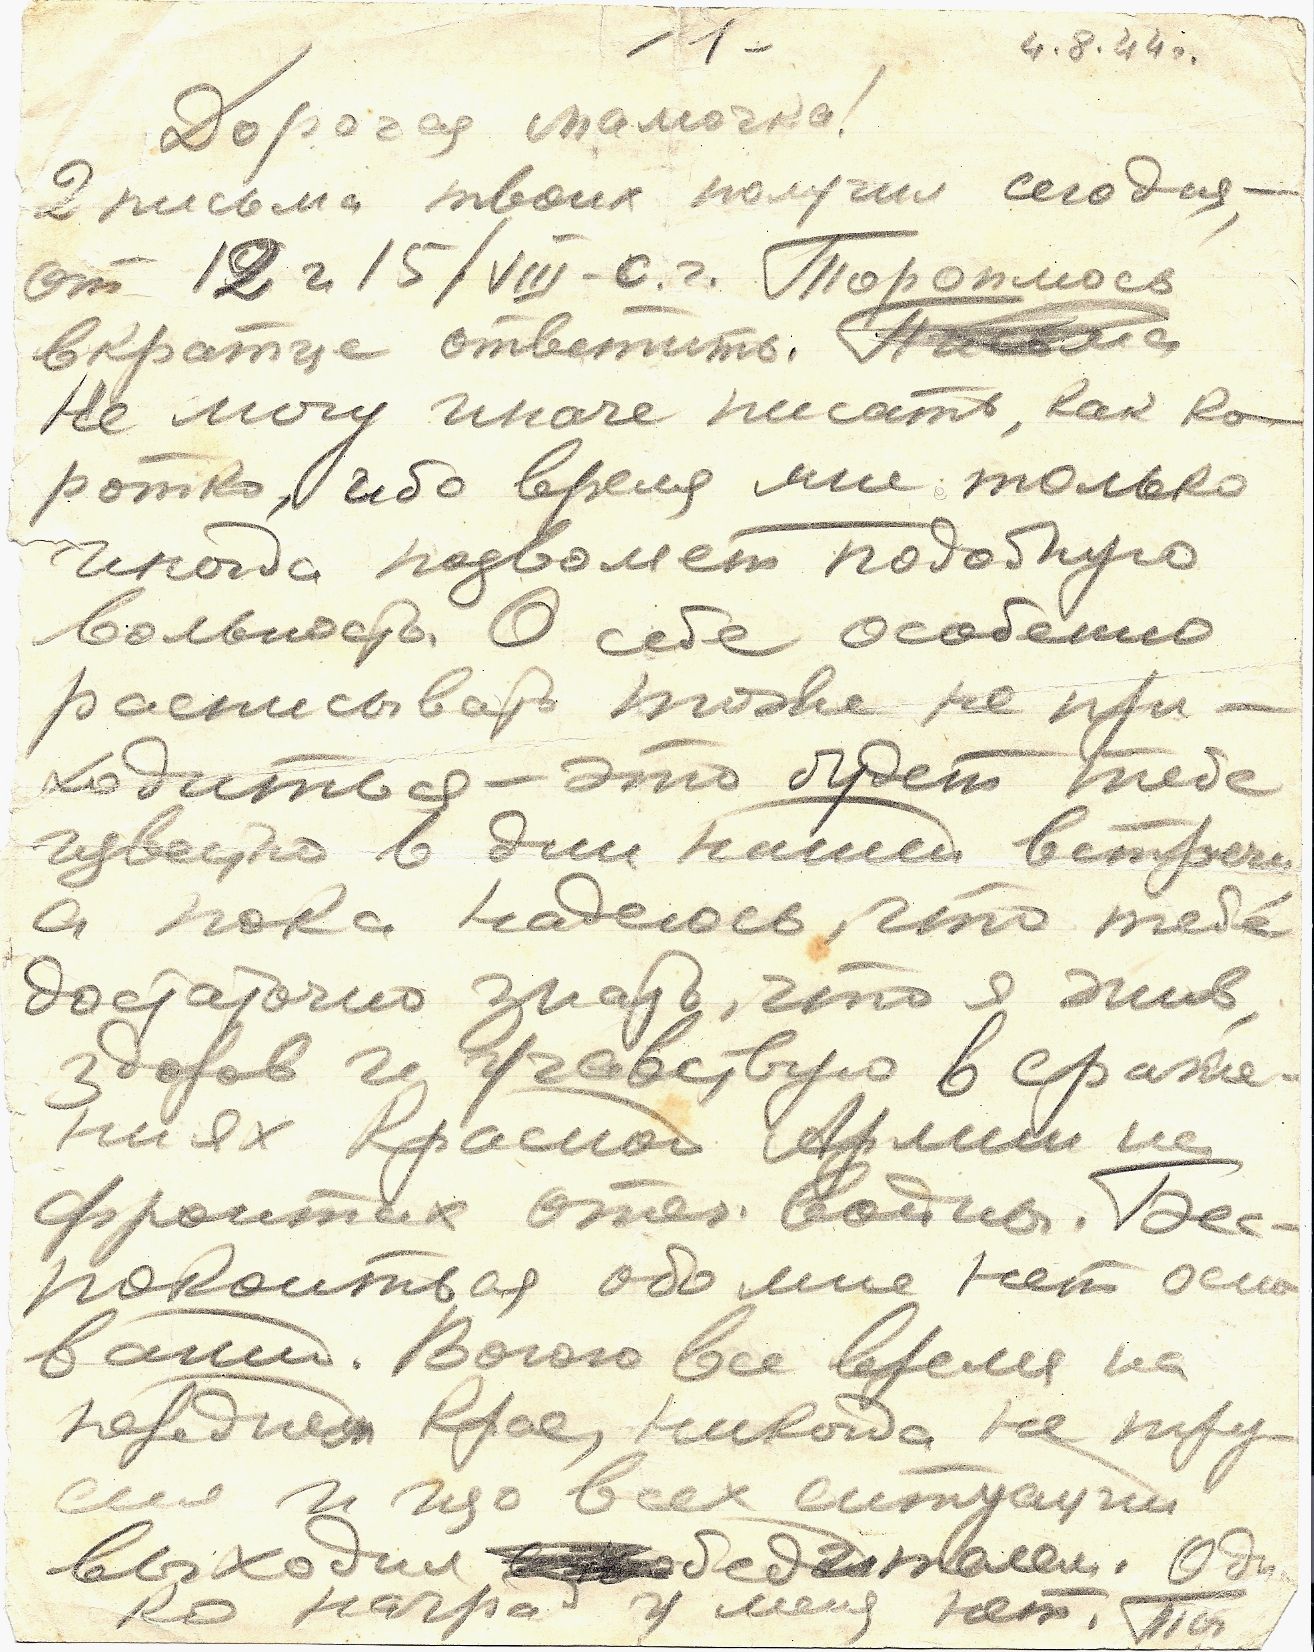 - 1 -
4.8.44г.
Дорогая мамочка!
2 письма твоих получил сегодня, —
от 12 и 15/VIII - с.г. Тороплюсь
вкратце ответить. Письма
Не могу иначе писать, как ко-
ротко, ибо время мне только
иногда позволяет подобную
вольность. О себе особенно
расписывать тоже не при-
ходиться — это будет тебе
известно в дни нашей встречи
а пока надеюсь, что тебе
достаточно знать, что я жив,
здоров и участвую в сраже-
ниях Красной Армии на
фронтах отеч. войны. Бес-
покоиться обо мне нет осно
ваний. Воюю все время на
переднем крае, никогда не тру-
сил и изо всех ситуаций
выходил победителем. Одна
ко наград у меня нет. Ты